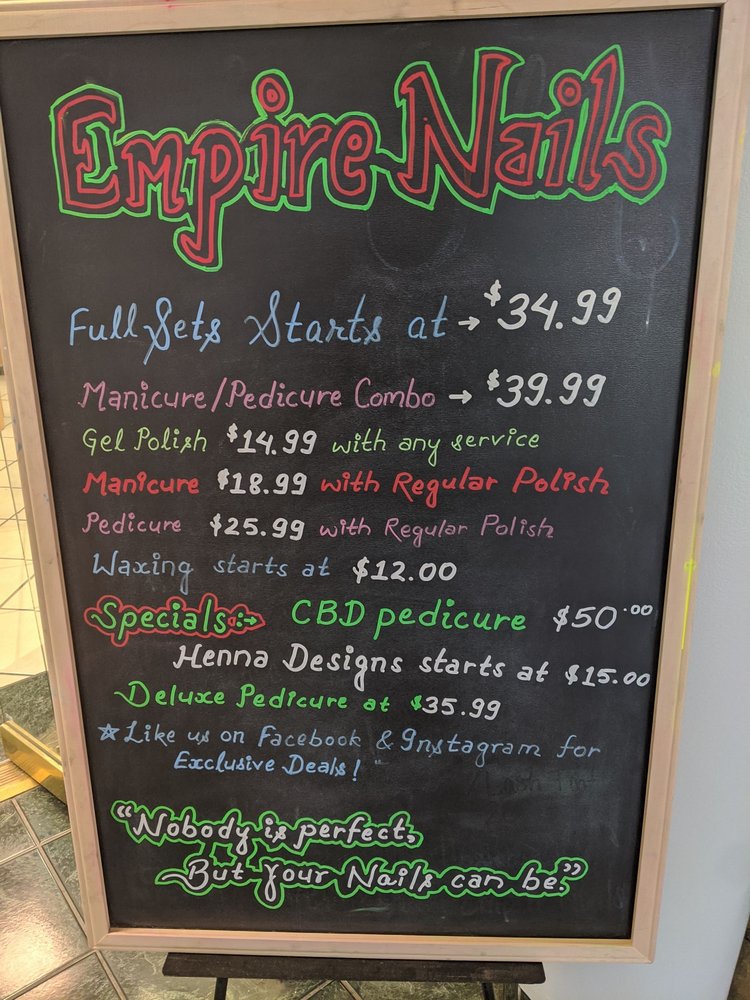 Empire Nails
Full Sets Starts at → $34.99
Manicure/Pedicure Combo → $39.99
Gel Polish $14.99 with any service
Manicure $18.99 with Regular Polish
Pedicure $25.99 with Regular Polish
Waxing starts at $12.00
Specials:→ CBD pedicure $50.00
Henna Designs starts at $15.00
Deluxe Pedicure at $35.99
☆Like us on Facebook & Instagram for
Exclusive Deals!
"Nobody is perfect,
But your Nails can be."